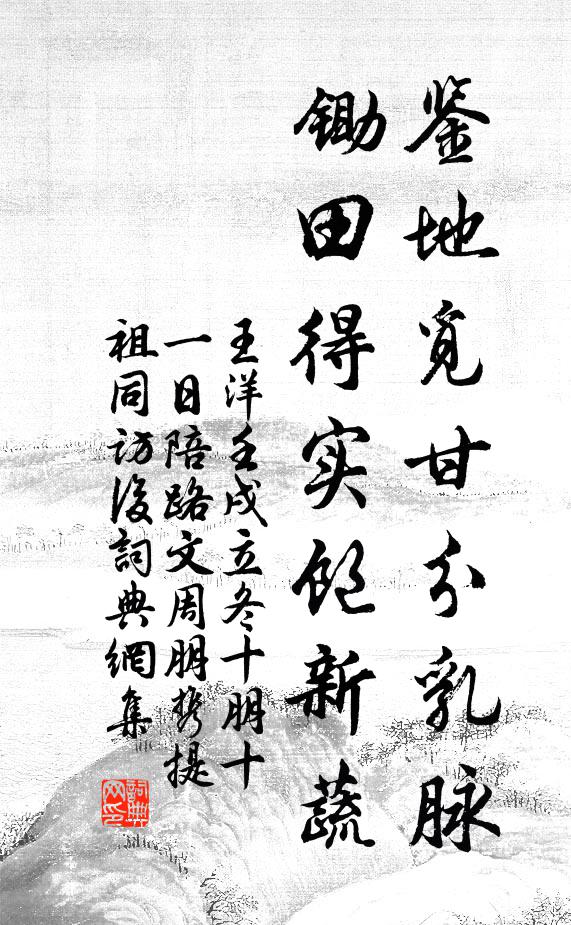 鉴地觅甘分乳脉
锄田得实饱新蔬
王洋壬戌立冬十朋十
一日陪路文周朋携提
祖同访後詞典網集
詞典网印